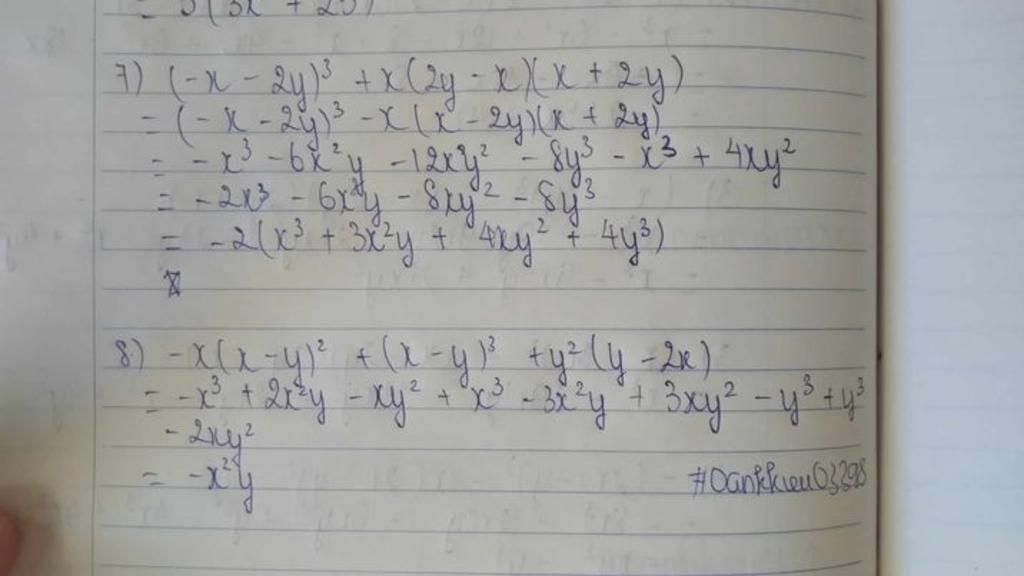 = 5(3x + 25)
7) (-x - 2y)³ + x(2y - x)(x + 2y)
= (-x - 2y)³ - x(x - 2y)(x + 2y)
= -x³ - 6x²y - 12xy² - 8y³ - x³ + 4xy²
= -2x³ - 6x²y - 8xy² - 8y³
= -2(x³ + 3x²y + 4xy² + 4y³)
8) -x(x-y)² + (x-y)³ + y²(y-2x)
= -x³ + 2x²y - xy² + x³ - 3x²y + 3xy² - y³ + y³
- 2xy²
= -x²y